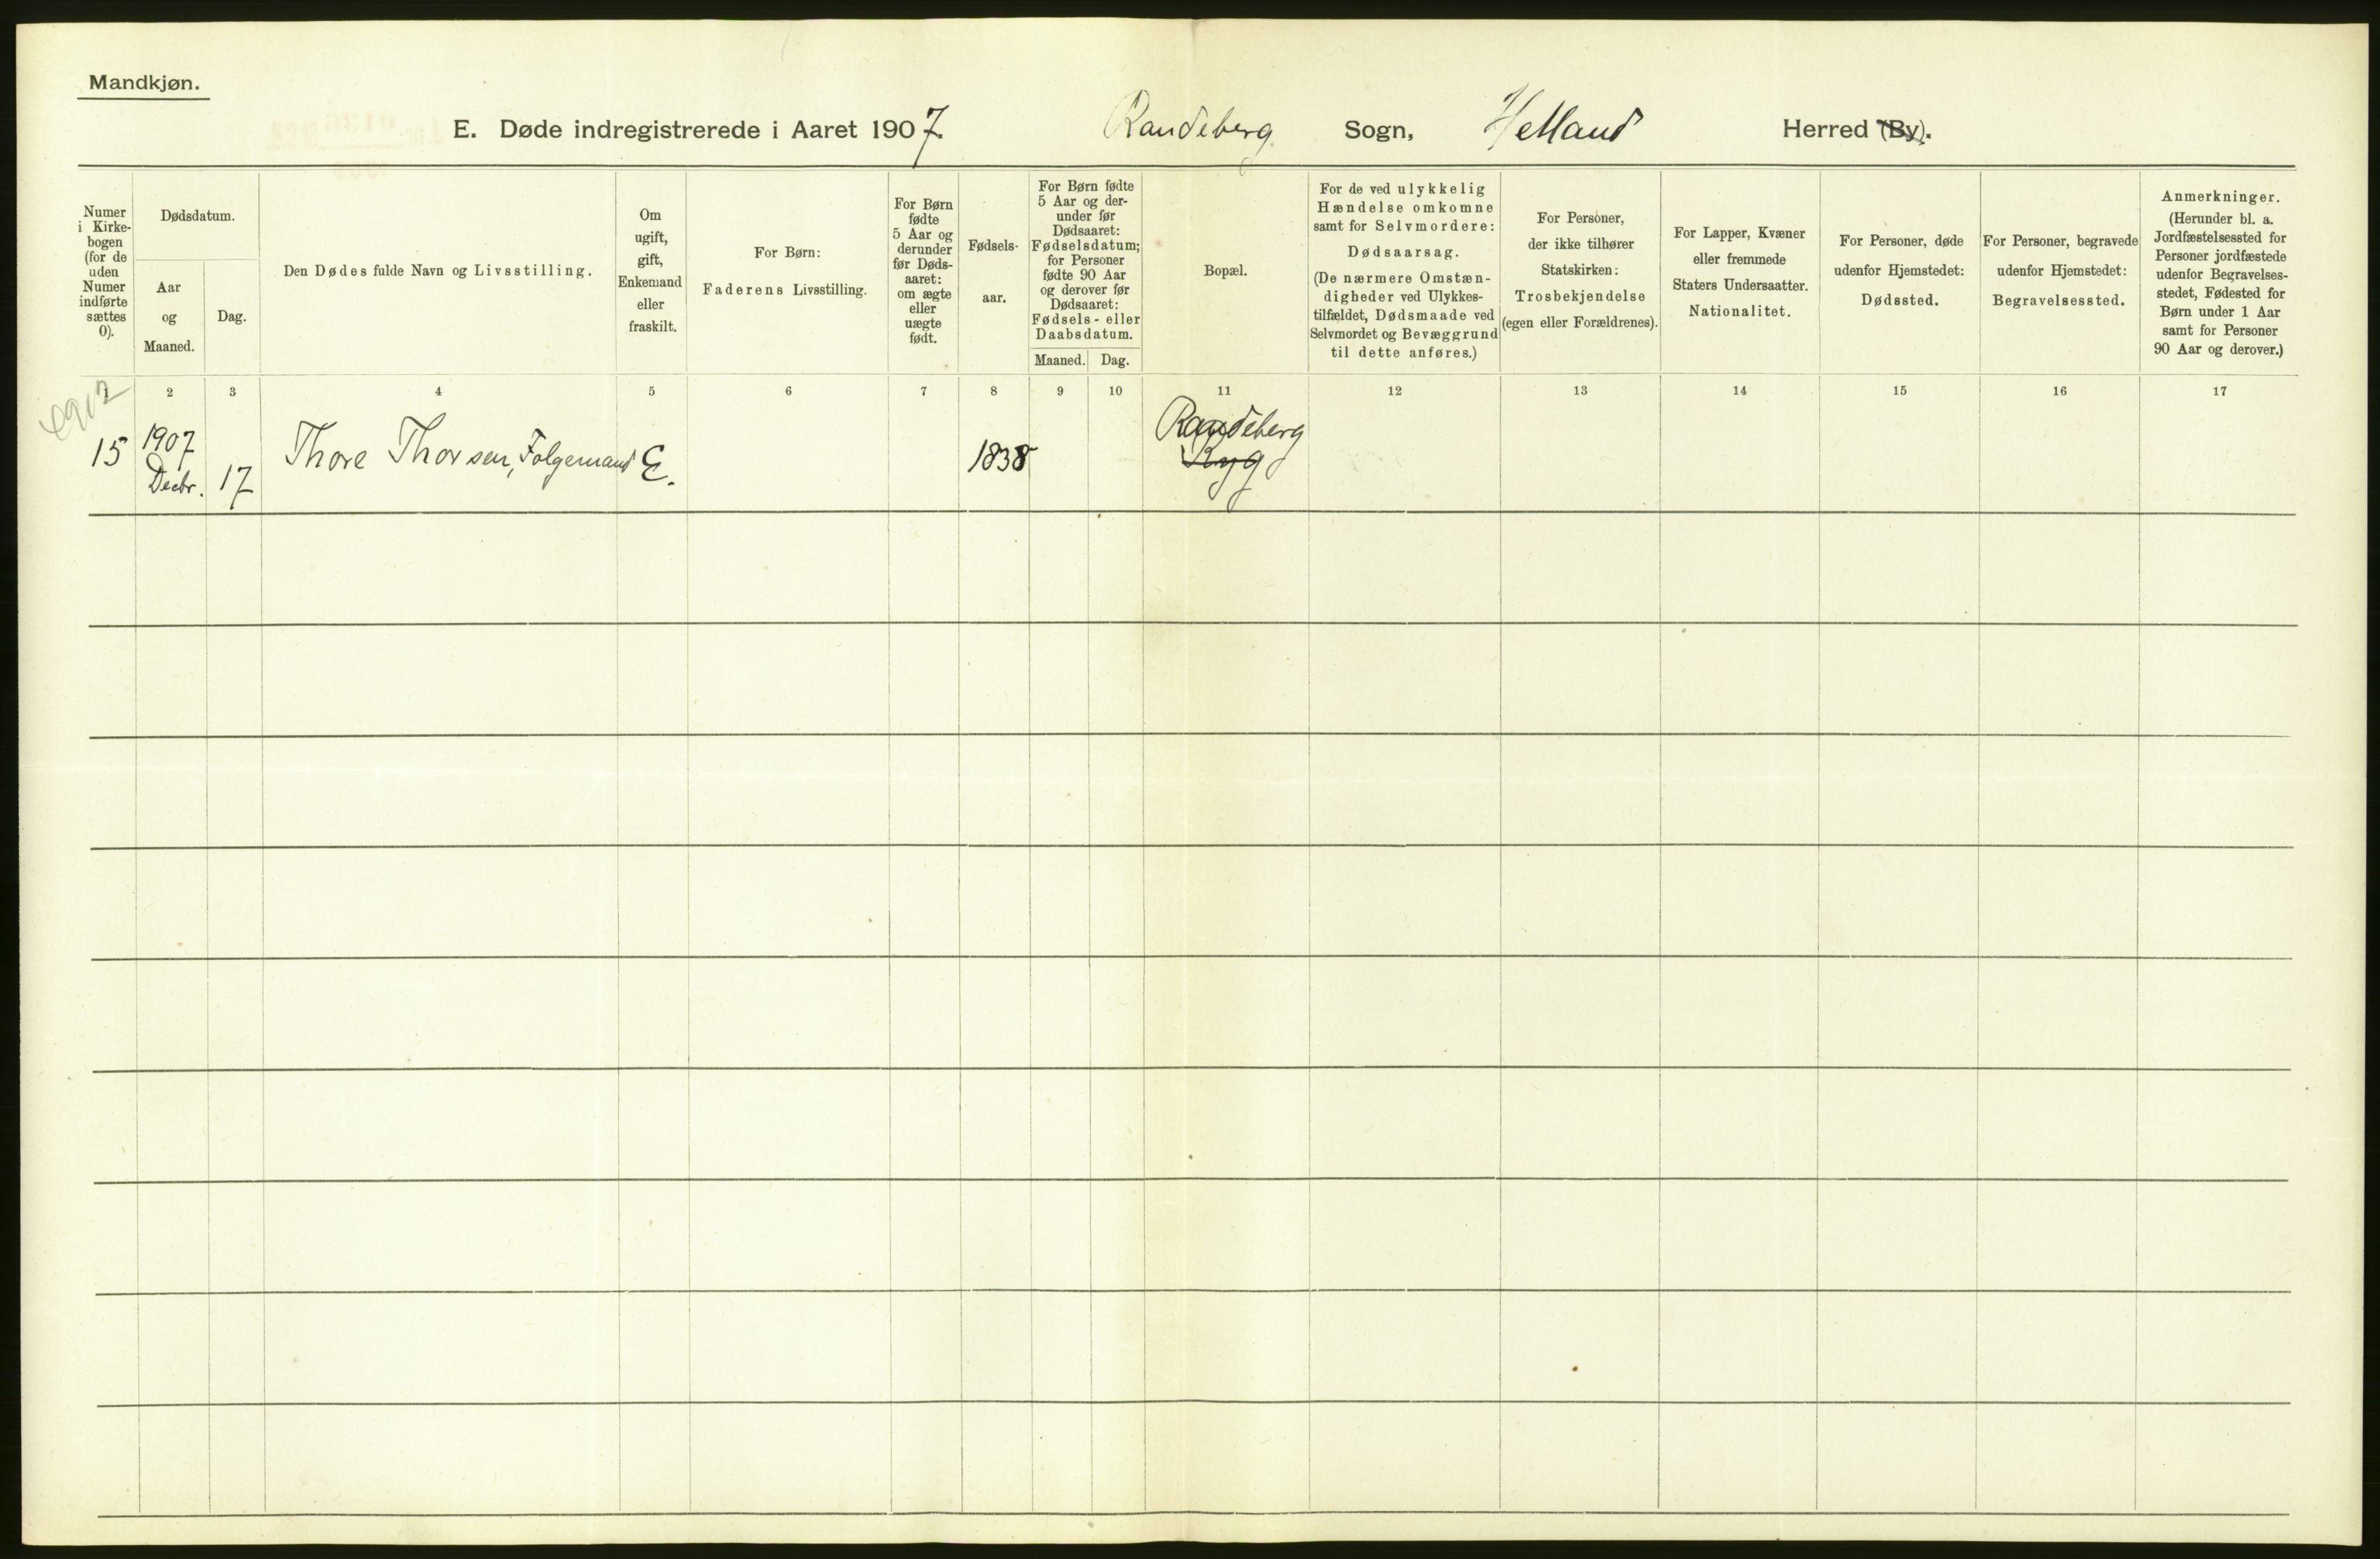 Mandkjøn.
E. Døde indregistrerede i Aaret 1907. Randeberg Sogn, Hetland Herred (By).
Numer
i Kirke-
bogen
(for de
uden
Numer
indførte
sættes
0).
Dødsdatum.
Aar
og
Maaned.
Dag.
Den Dødes fulde Navn og Livsstilling.
Om
ugift,
gift,
Enkemand
eller
fraskilt.
For Børn:
Faderens Livsstilling.
For Børn
fødte
5 Aar og
derunder
før Døds-
aaret:
om ægte
eller
uægte
født.
Fødsels-
aar.
For Børn fødte
5 Aar og der-
under før
Dødsaaret:
Fødselsdatum;
for Personer
fødte 90 Aar
og derover før
Dødsaaret:
Fødsels- eller
Daabsdatum.
Maaned.
Dag.
Bopæl.
For de ved ulykkelig
Hændelse omkomne
samt for Selvmordere:
Dødsaarsag.
(De nærmere Omstæn-
digheder ved Ulykkes-
tilfældet, Dødsmaade ved
Selvmordet og Bevæggrund
til dette anføres.)
For Personer,
der ikke tilhører
Statskirken:
Trosbekjendelse
(egen eller Forældrenes).
For Lapper, Kvæner
eller fremmede
Staters Undersaatter.
Nationalitet.
For Personer, døde
udenfor Hjemstedet:
Dødssted.
For Personer, begravede
udenfor Hjemstedet:
Begravelsessted.
Anmerkninger.
(Herunder bl. a.
Jordfæstelsessted for
Personer jordfæstede
udenfor Begravelses-
stedet, Fødested for
Børn under 1 Aar
samt for Personer
90 Aar og derover.)
1 2 3 4 5 6 7 8 9 10 11 12 13 14 15 16 17
1907 Randeberg
15 Decbr. 17 Thore Thorsen, Folgemand E. 1838